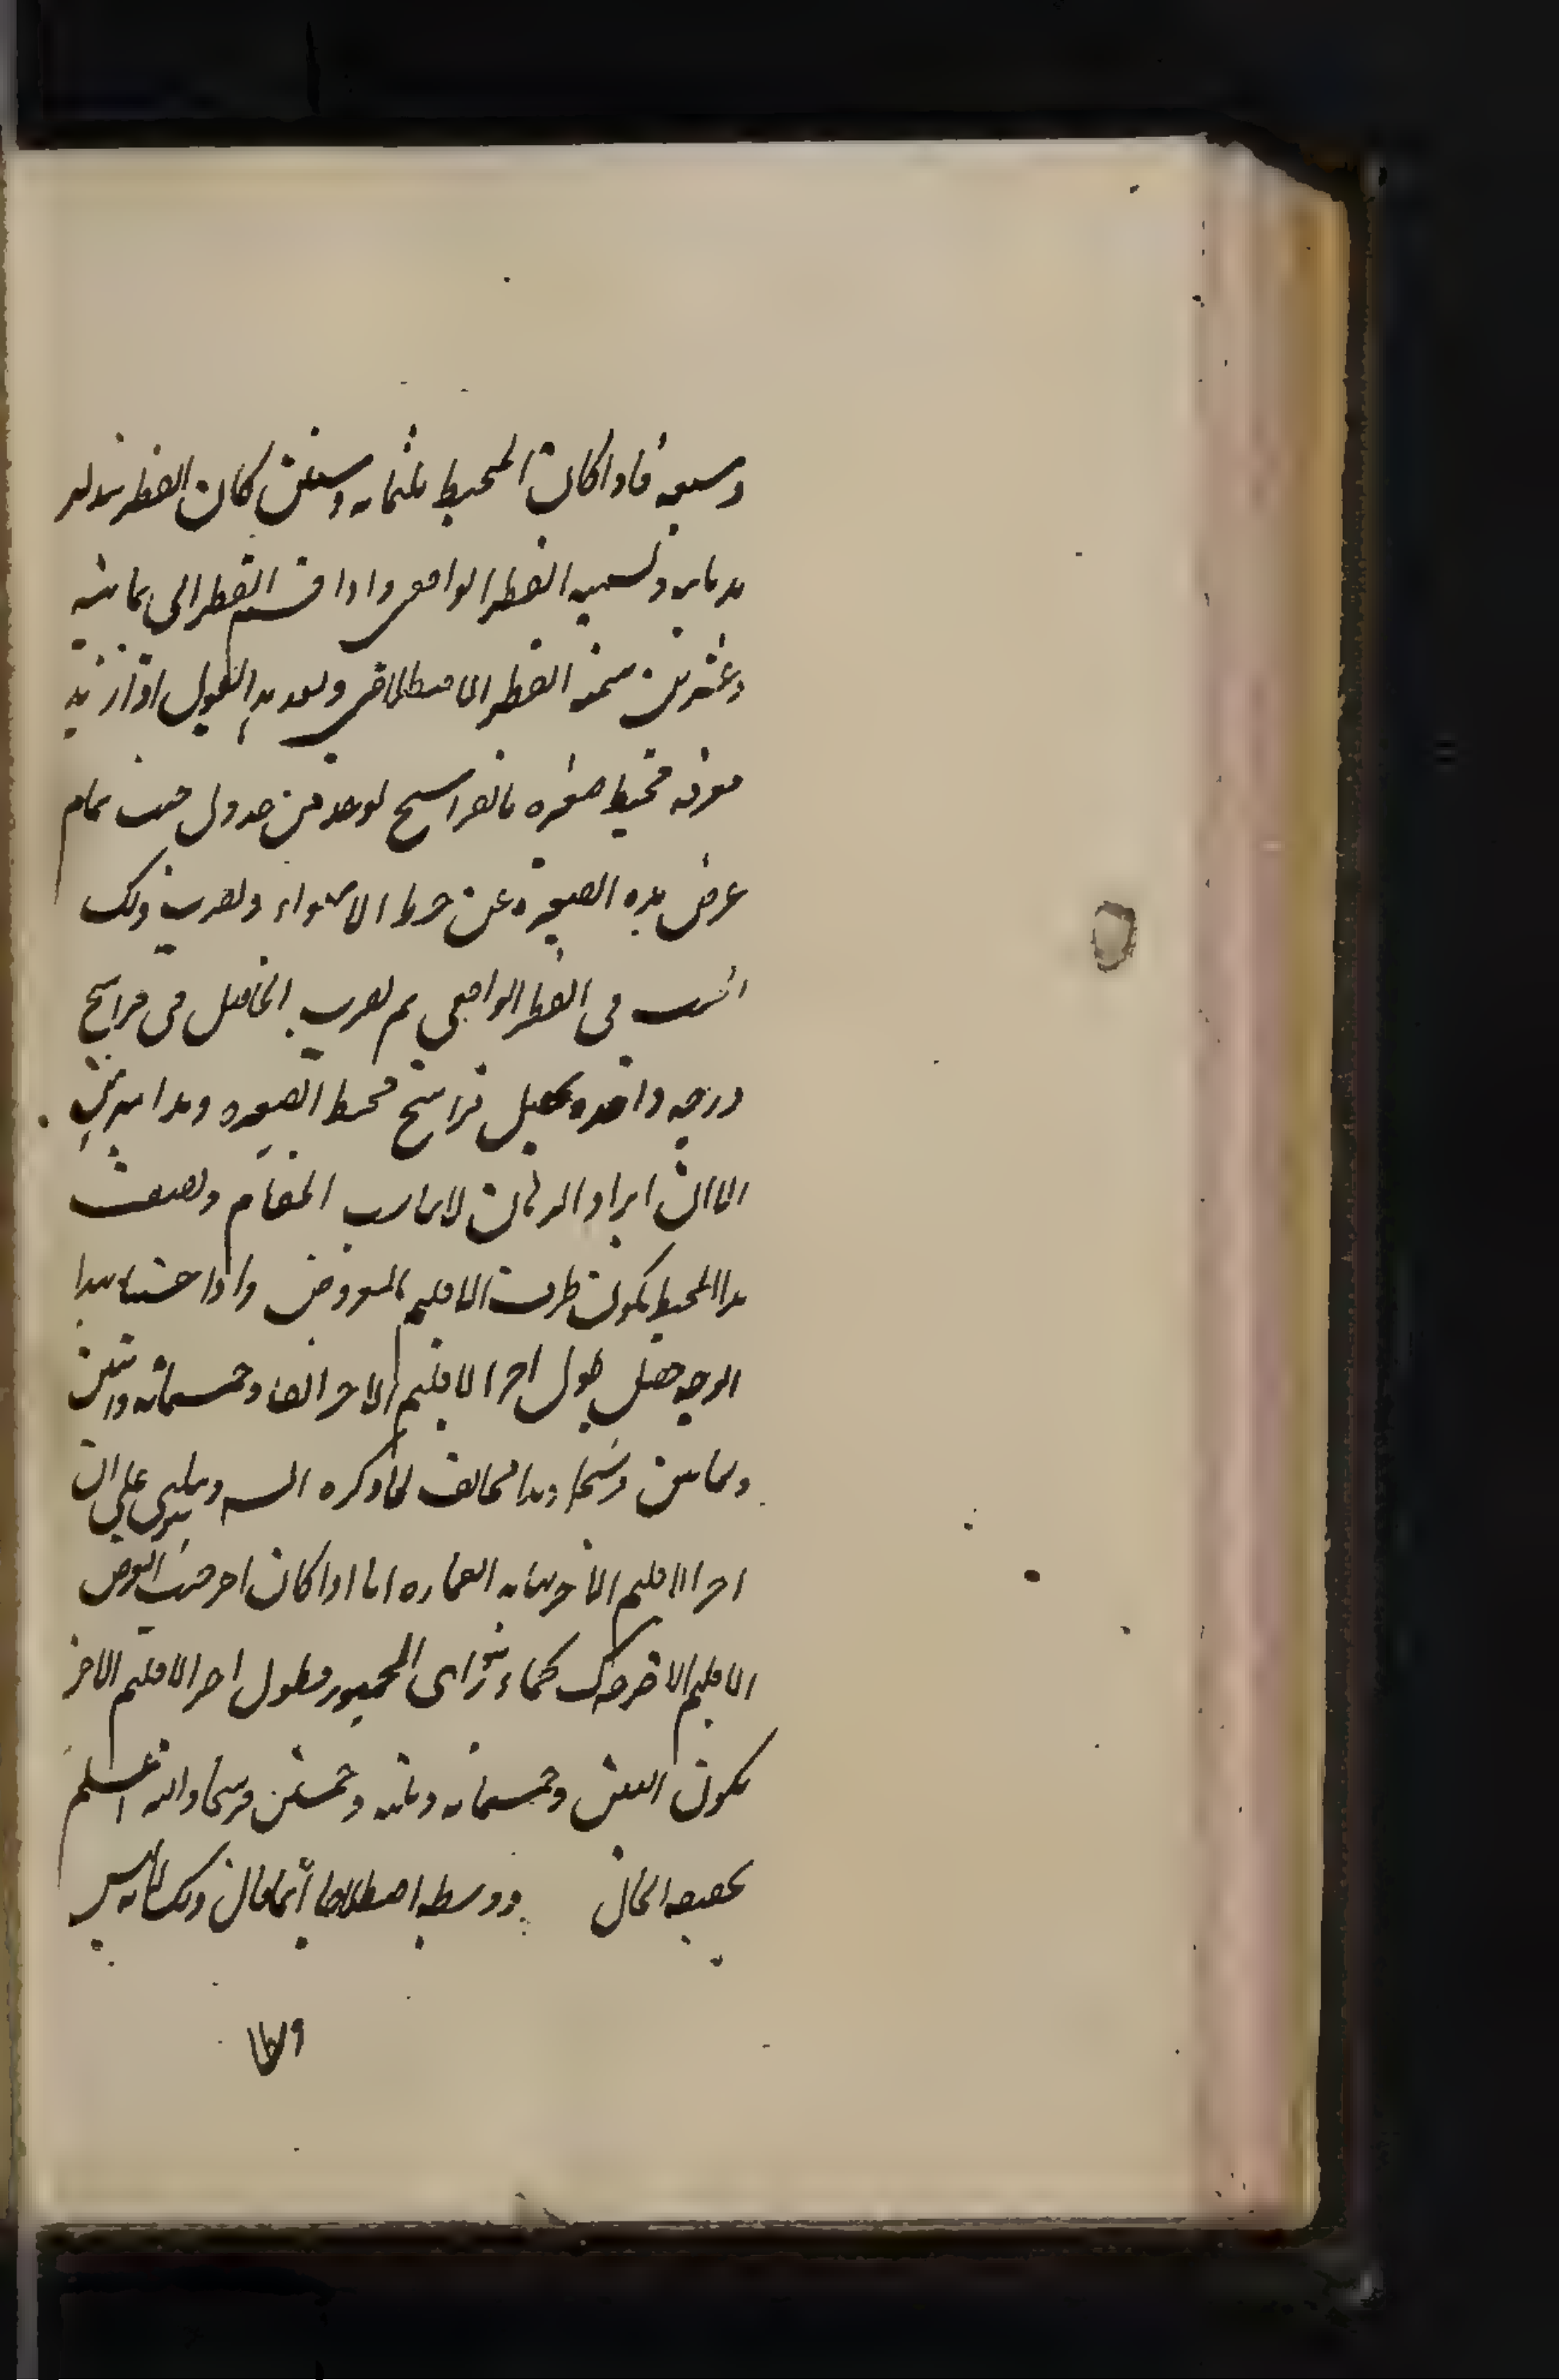 وسبعة فاذا كان المحيط ثلثمائه وستين كان القطر
ونسميه القطر الواقعى واذا قسم القطر الى ثمانيه
وعشرين سمى القطر الاصطلاحى وبعد هذا نقول اذا اريد
معرفه محيط صغيره بالفراسخ يوخذ من جدول جيب تمام
عرض هذه الصغيره عن خط الاستواء ويضرب ذلك
الجيب فى القطر الواقعى ثم يضرب الحاصل فى فراسخ
درجه واحده يحصل فراسخ محيط الصغيره وهذا مبرهن
الا ان ايراد البرهان لا يناسب المقام ونصف
هذا المحيط يكون طرف الاقليم المفروض واذا حسبنا بهذا
الوجه حصل طول اخر الاقليم الاخر الفا وخمسمائه واثنين
وثمانين فرسخا وهذا مخالف لما ذكره السيد ومبنى على ان
اخر الاقليم الاخر نهايه العماره اما اذا كان اخر حيث العرض
الاقليم الاخر كما هو راى الجمهور فطول اخر الاقليم الاخر
يكون الفين وخمسمائه وثلثه وخمسين فرسخا والله اعلم
بحقيقه الحال ووسطه اصطلاحا انما قال ذلك لانه ليس